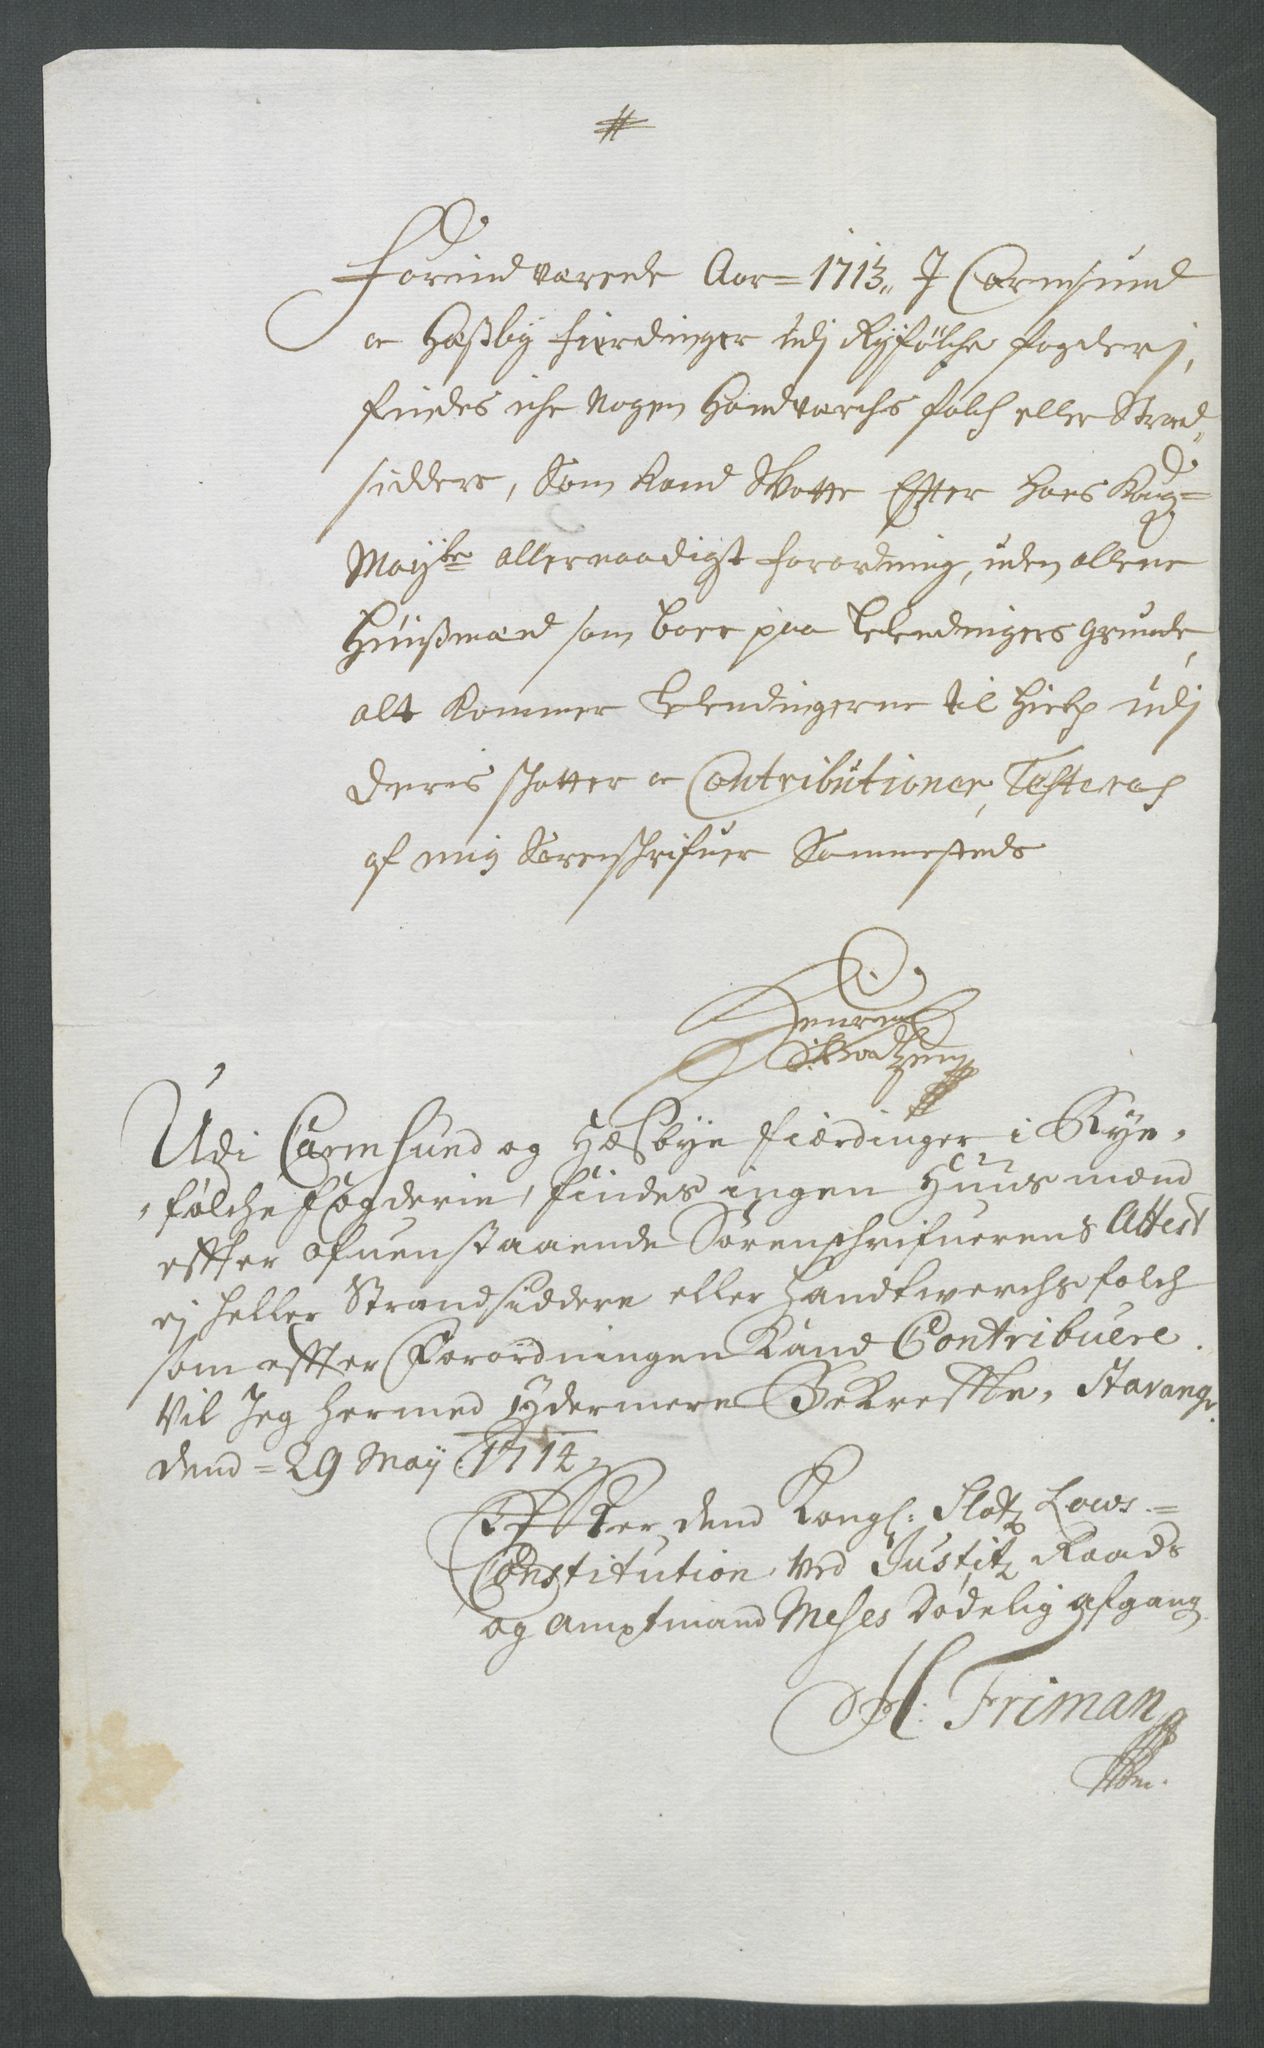 Forindværende Aar = 1713,, I Carmsund
oc Hæßby fierdinger udj Ryfølche fogderj,
findes iche nogen Handværchs folch eller Strand,,
siddere, Som Kand Skatte Efter Hans Kong=
Mayts allernaadigst forordning, uden allene
Huußmænd som boer paa Leilendingers grunde,
alt kommer Leilendingerne til hielp udj
deris schatter oc Contributioner, Testeres
af mig Sorenschrifuer Sammesteds
Henrich
Udi Carmsund og Hæsbye fierdinger i Rye,
,følche fogderie, findes ingen Huusmænd
effter ofuenstaaende Sorenschrifuerens Attest
ej heller Strandsiddere eller Handtverchsfolch
som effter Forordningen kand Contribuere.
Vil Jeg hermed ydermere Bekreffte, Stavangr.
dend = 29 May 1714,
Effter dend Kongl: Slotz Lows =
Constitution ved Justitz Raads
og Amptmand Meses Dødelig afgang
H: Friman